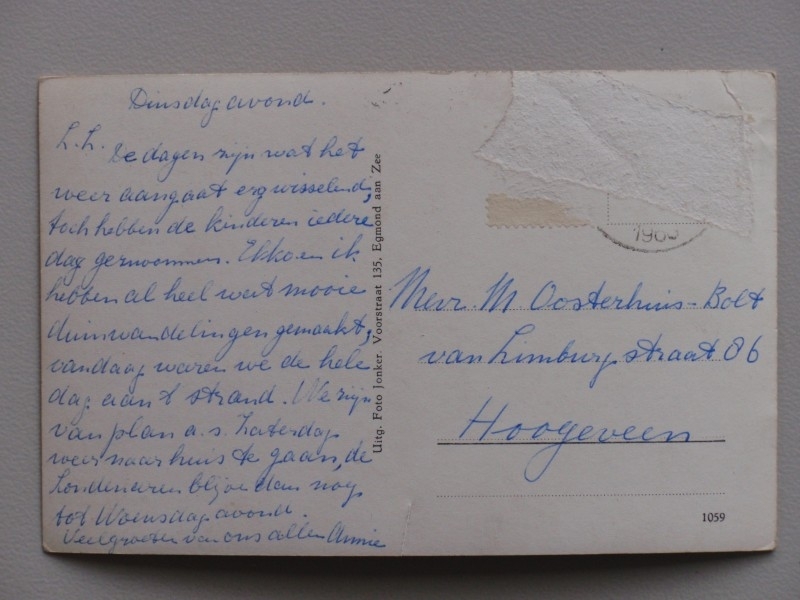 Dinsdagavond.
L.L. De dagen zijn wat het
weer aangaat erg wisselend,
toch hebben de kinderen iedere
dag gezwommen. Ekko en ik
hebben al heel wat mooie
duinwandelingen gemaakt,
vandaag waren we de hele
dag aan 't strand. We zijn
van plan a.s. Zaterdag
weer naar huis te gaan, de
blijven dan nog
tot Woensdagavond.
Veel groeten van ons allen Annie
Uitg. Foto Jonker. Voorstraat 135, Egmond aan Zee
Mevr. M. Oosterhuis-Bolt
van Limburg straat 86
Hoogeveen
1059